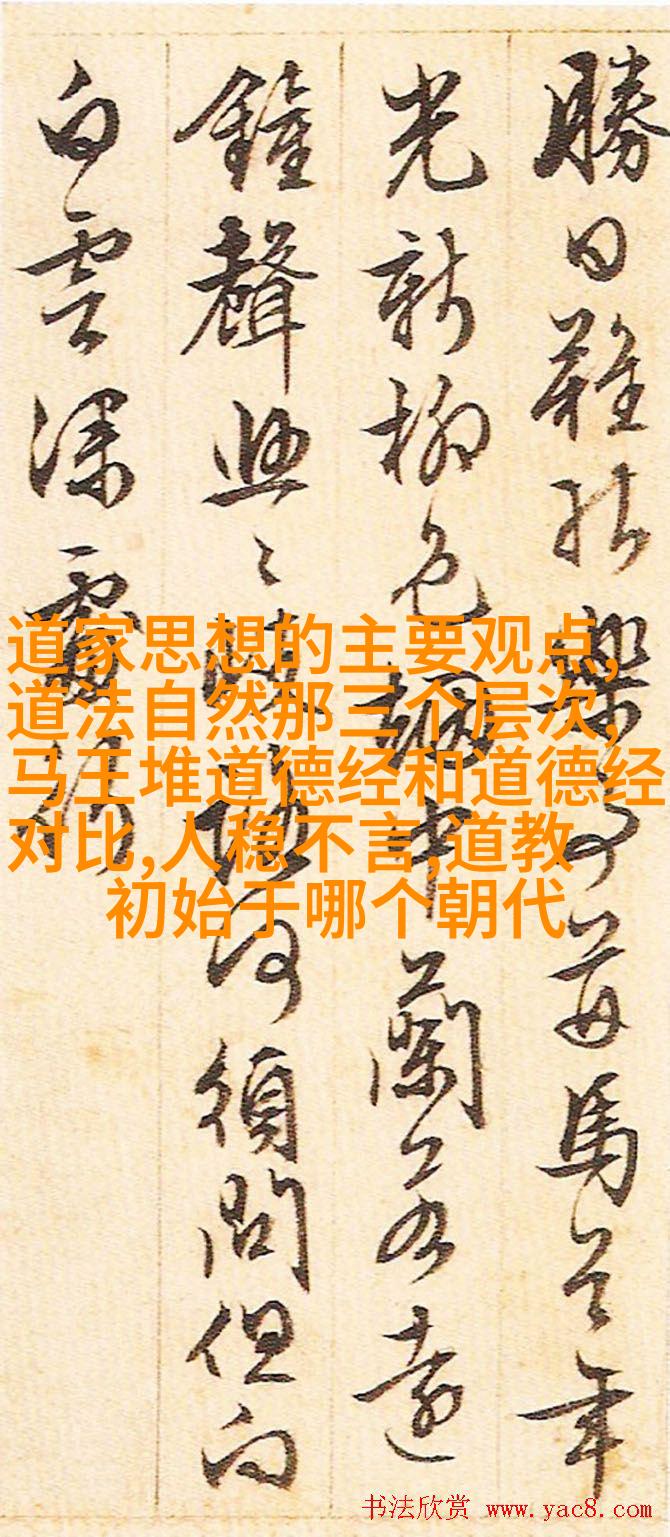 勝日難馬年
光新柳色中蘭若遠
鐘聲何須問但向
白雲深處行
道家思想的主要观点,
道法自然那三个层次,
马王堆道德经和道德经
对比,人稳不言,道教
初始于哪个朝代
书法欣赏 www.yac8.com